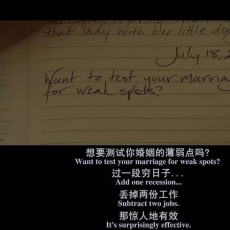 that lady with her little dog
July 18, 2
Want to test your marria
for weak spots?
想要测试你婚姻的薄弱点吗?
Want to test your marriage for weak spots?
过一段穷日子...
Add one recession...
丢掉两份工作
Subtract two jobs.
那惊人地有效
It's surprisingly effective.